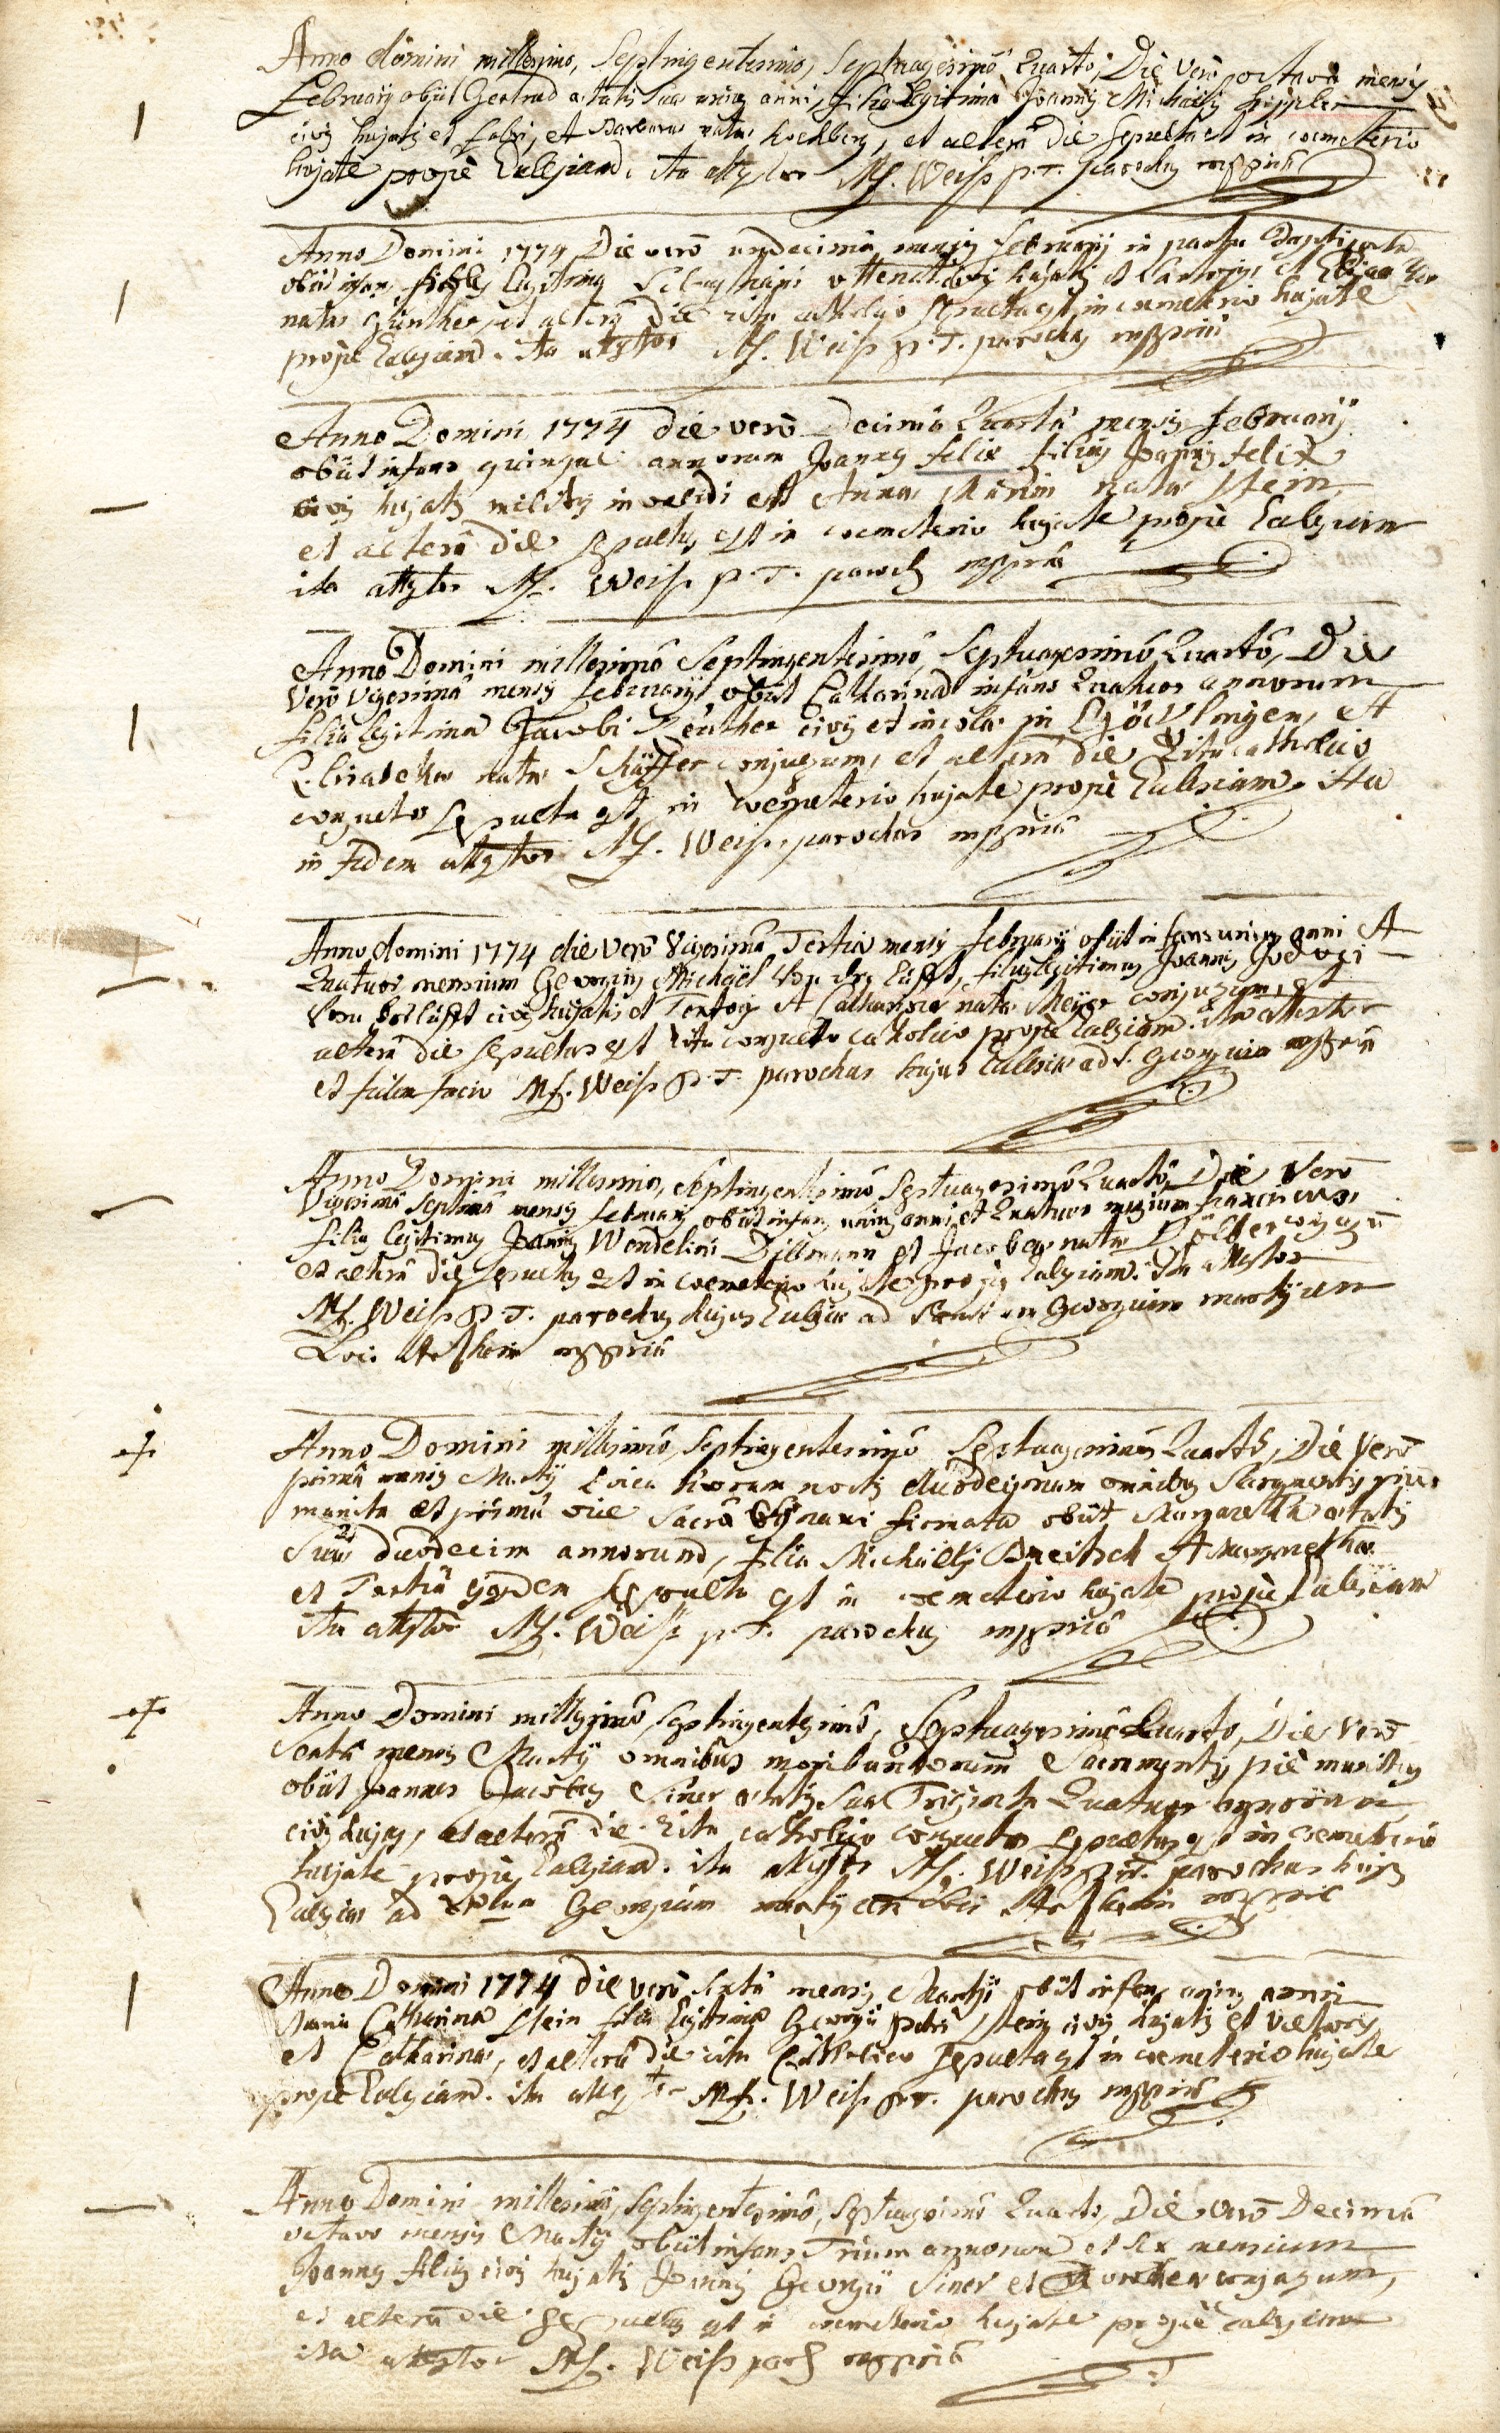 Anno domini millesimo, Septingentesimo, Septuagesimô Quarto, Die verò octavâ mensis
Februarij obijt Gertrud aetatis suae unius anni, filia legitima Joannis Michaelis
civis hujatis et fabri, et Barbarae natae Hochberg, et alterâ die sepulta est in coemeterio
hujate propè Ecclesiam. ita attestor M. Weiss p.T. parochus mppriâ
Anno Domini 1774 Die verò undecimâ mensis februarij in partu baptizata
obijt infans, legitima civis hujatis et et
nata Günther, et alterâ die ritu catholico sepulta est in coemeterio hujate
propè Ecclesiam. ita attestor M. Weiss p.T. parochus mppriâ
Anno Domini 1774 die verò Decimâ Quartâ mensis februarij
obijt infans quinque annorum Joannes felix filius Joannis felix
civis hujatis militis invalidi et Annae Mariae nata Stein
et alterâ die sepultus est in coemeterio hujate propè Ecclesiam
ita attestor M. Weiss p.T. paroch mppriâ
Anno Domini millesimô Septingentesimô, Septuagesimô Quartô, Die
verò vigesimâ mensis februarij obijt Catharina infans Quatuor annorum
filia legitima Jacobi Reuther civis et incolae in et
Elisabethae natae Schäffer conjugum, et alterâ die Ritu catholico
consueto sepulta est in coemeterio hujate propè Ecclesiam. Ita
in fidem attestor M. Weiss, parochus mppriâ
Anno domini 1774 die verò Vigesimâ Tertiâ mensis februarij obijt infans unius anni et
Quatuor mensium Georgius Michaël Von der Lüfft, filius legitimus Joannis Jodoci
Von der Lüfft civis hujatis et Textoris et Catharinae nata Meÿer conjugum, et
alterâ die sepultus est ritu consueto catholico propè Ecclesiam. Ita attestor
et fidem facio M. Weiss p.T. parochus hujus Ecclesiae ad S. Georgium mppriâ
Anno Domini millesimo, Septingentesimô Septuagesimô Quartô, Die Verò
Vigesimâ Septimâ mensis februarij obijt infans unius anni et Quatuor mensium Franciscus
filius legitimus Joannis Wendelini Dillmann et Jacobea nata conjugum
et alterâ die sepultus est in coemeterio hujate propè Ecclesiam. Ita attestor
M. Weiss p.T. parochus hujus Ecclesiae ad Sanctum Georgium martyrem
Loci mppriâ
Anno Domini millesimô, Septingentesimô Septuagesimô Quartô, Die Verò
primâ mensis Martij circa horam noctis duodecimam omnibus Sacramentis piè
munita et primâ vice Sacrâ Synaxi firmata obijt Margaretha aetatis
suae duodecim annorum, filia Michaëlis Breitsch et Margarethae
et Tertiâ ejusdem sepulta est in coemeterio hujate propè Ecclesiam
ita attestor M. Weiss p.T. parochus mppriâ
Anno Domini millesimô, Septingentesimô, Septuagesimô Quarto, Die Verò
Sextâ mensis Martij omnibus moribundorum Sacramentis piè munitus
obijt Joannes Jacobus Siner aetatis suae Triginta Quatuor annorum
civis hujas, et alterâ die Ritu catholico consueto sepultus est in coemeterio
hujate propè Ecclesiam. ita attestor M. Weiss p.T. parochus hujus
Ecclesiae ad Georgium martyrem Loci mppriâ
Anno Domini 1774 Die verò Sextâ mensis Martij obijt infans unius anni
Maria Catharina Stein filia legitima Georgii Petri Stein civis hujatis et
et Catharinae, et alterâ die ritu Catholico sepulta est in coemeterio hujate
propè Ecclesiam. ita attestor M. Weiss p.T. parochus mppriâ
Anno Domini millesimô, Septingentesimô, Septuagesimô Quarto, Die Verò Decimâ
octavâ mensis Martij obijt infans Trium annorum et Sex mensium
Joannes filius civis hujatis Joannis Georgii Siner et conjugum,
et alterâ die sepultus est in coemeterio hujate propè Ecclesiam
ita attestor M. Weiss paroch mppriâ